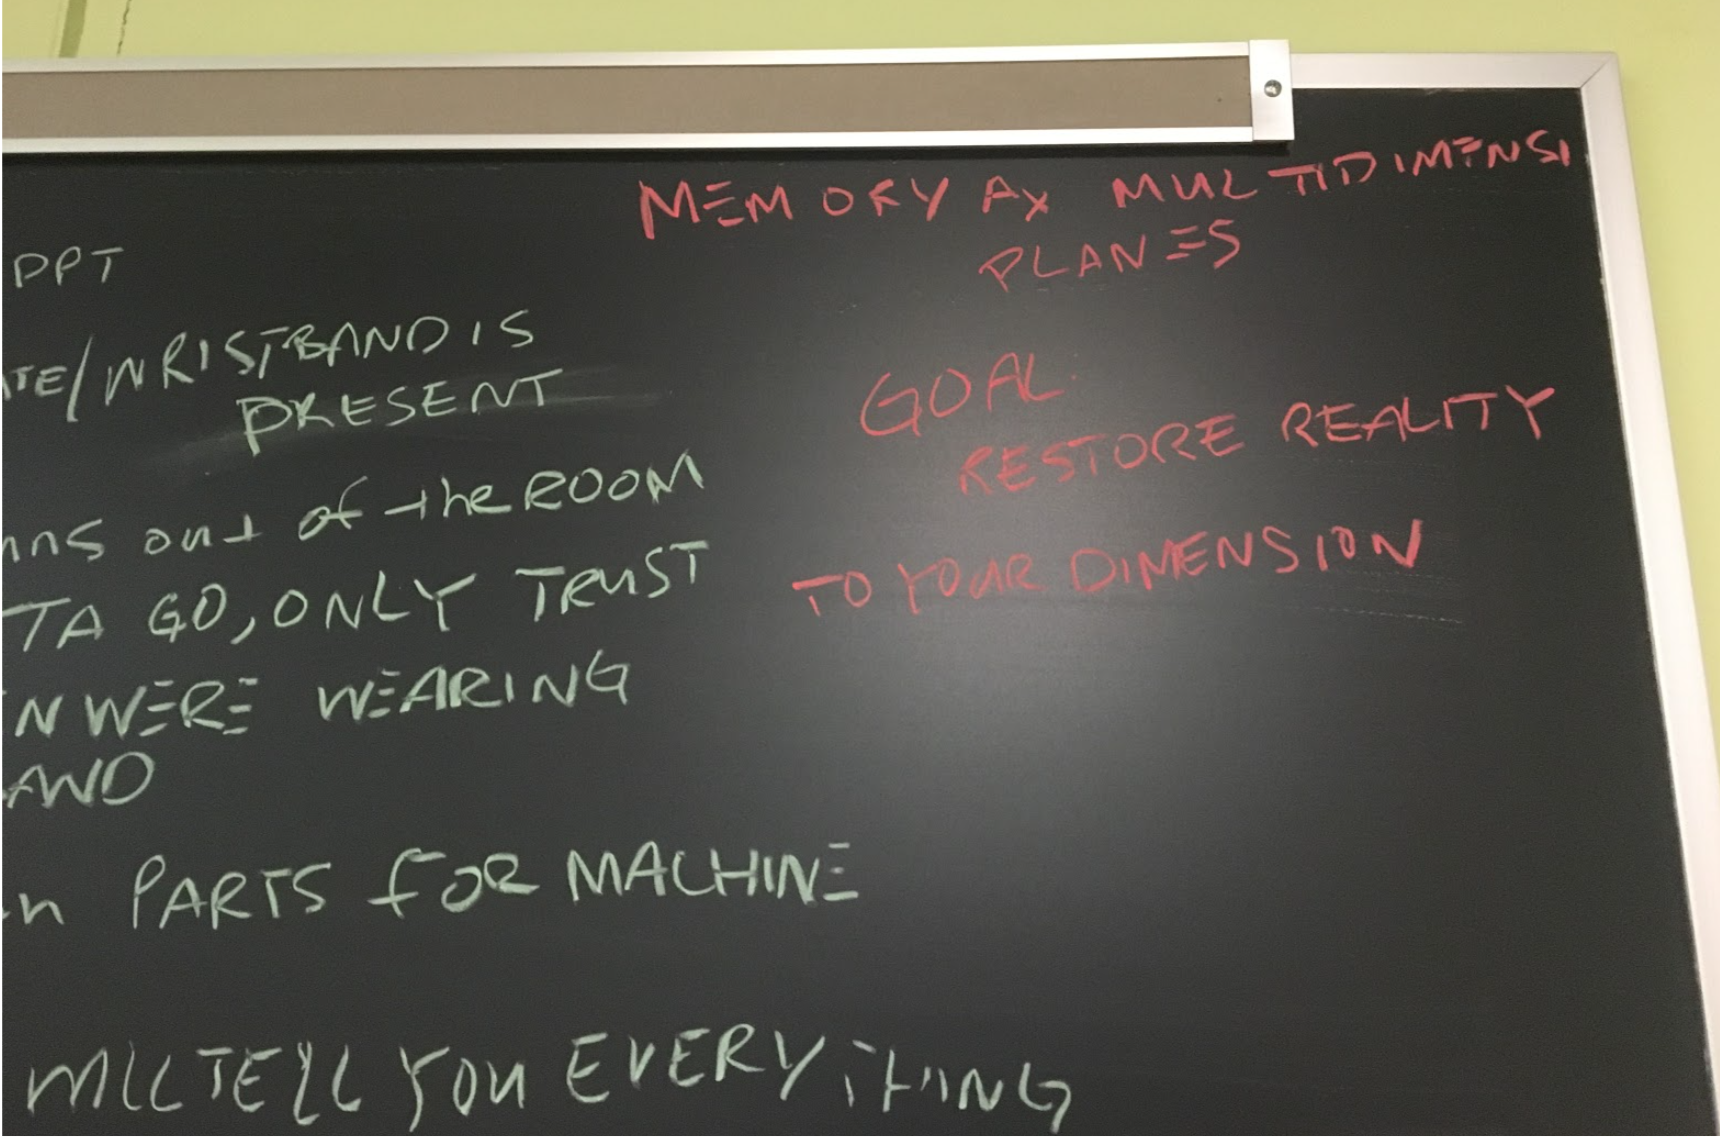 MEMORY AX MULTIDIMENSI
PLANES
PPT
TE/WRISTBAND IS
PRESENT
GOAL
RESTORE REALITY
TO YOUR DIMENSION
out of the ROOM
TA GO, ONLY TRUST
N WERE WEARING
AND
n PARTS for MACHINE
WILL TELL YOU EVERYTHING